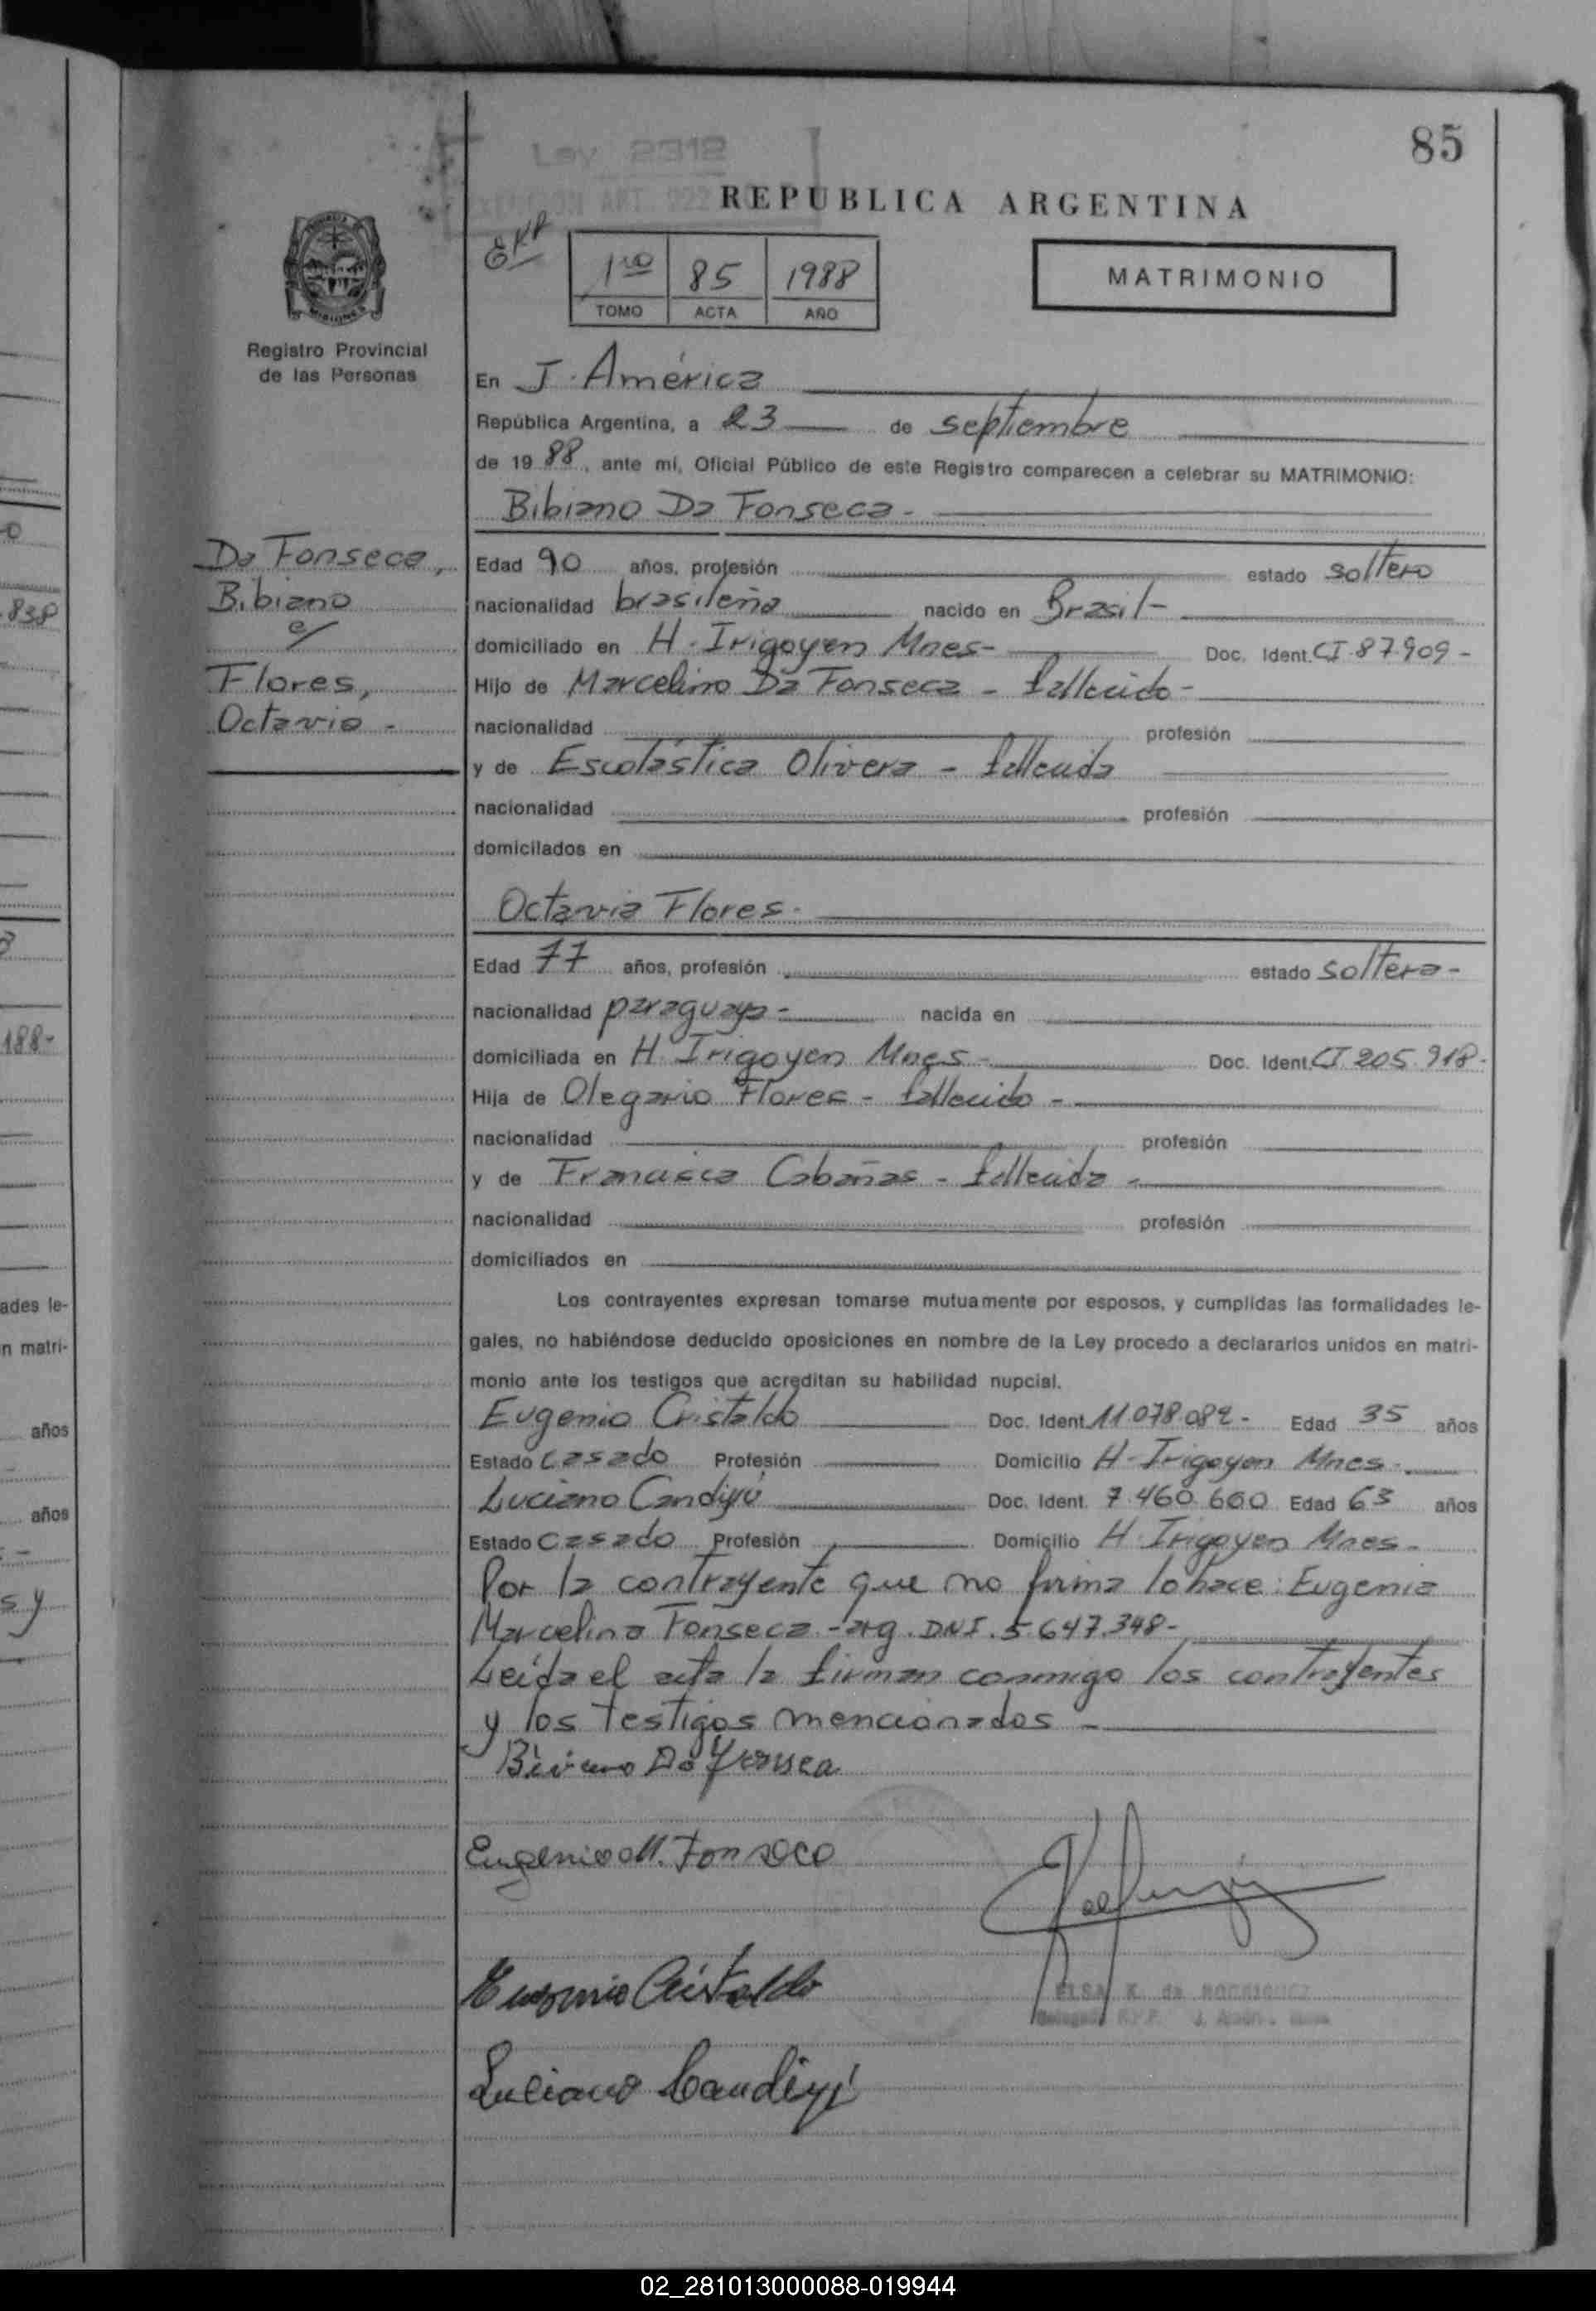 85
Ley 2312
REPUBLICA ARGENTINA
1ro 85 1988
TOMO ACTA AÑO
MATRIMONIO
MISIONES
Registro Provincial
de las Personas
Da Fonseca,
Bibiano
c/
Flores,
Octavia -
En J. América
República Argentina, a 23 de septiembre
de 1988, ante mí, Oficial Público de este Registro comparecen a celebrar su MATRIMONIO:
Bibiano Da Fonseca -
Edad 90 años, profesión estado soltero
nacionalidad brasileña nacido en Brasil -
domiciliado en H. Irigoyen Mnes - Doc. Ident. CI 87.909 -
Hijo de Marcelino Da Fonseca - fallecido -
nacionalidad profesión
y de Escolástica Olivera - fallecida
nacionalidad profesión
domicilados en
Octavia Flores -
Edad 77 años, profesión estado soltera -
nacionalidad paraguaya - nacida en
domiciliada en H. Irigoyen Mnes - Doc. Ident. CI 205.918 -
Hija de Olegario Flores - fallecido -
nacionalidad profesión
y de Francisca Cabañas - fallecida -
nacionalidad profesión
domiciliados en
Los contrayentes expresan tomarse mutuamente por esposos, y cumplidas las formalidades le-
gales, no habiéndose deducido oposiciones en nombre de la Ley procedo a declararlos unidos en matri-
monio ante los testigos que acreditan su habilidad nupcial.
Eugenio Cristaldo Doc. Ident. 11.078.082 - Edad 35 años
Estado casado Profesión Domicilio H. Irigoyen Mnes -
Luciano Candiyú Doc. Ident. 7.460.660 Edad 63 años
Estado casado Profesión Domicilio H. Irigoyen Mnes -
Por la contrayente que no firma lo hace: Eugenia
Marcelina Fonseca - arg. DNI. 5.647.348 -
Leída el acta la firman conmigo los contrayentes
y los testigos mencionados -
Biviano Da Fonseca
Eugenia M. Fonseca
Eugenio Cristaldo
ELSA K. de RODRIGUEZ
Luciano Candiyú
838
188-
ades le-
n matri-
años
años
s y
02_281013000088-019944